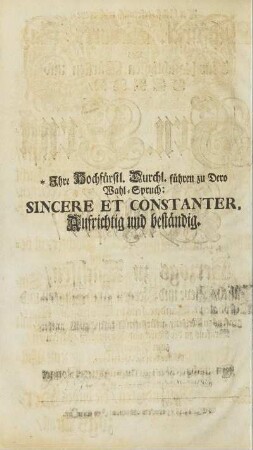 * Ihre Hochfürstl. Durchl. führen zu Dero
Wahl-Spruch:
SINCERE ET CONSTANTER.
Aufrichtig und beständig.